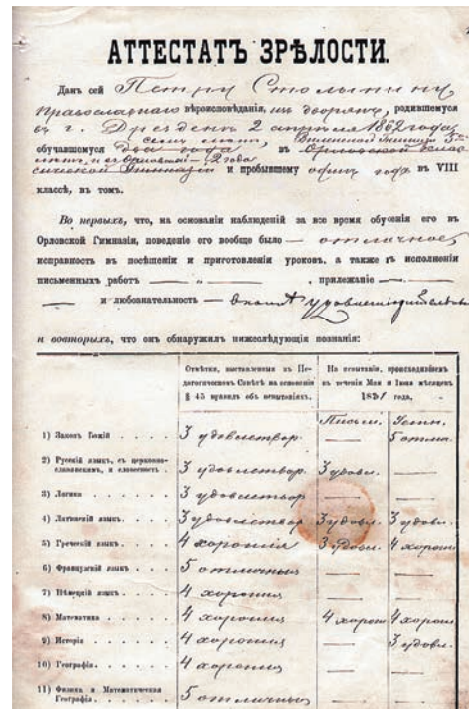 АТТЕСТАТЪ ЗРѢЛОСТИ.
Данъ сей Петру Столыпину
православнаго вѣроисповѣданія, изъ дворянъ, родившемуся
въ г. Дрезденѣ 2 апрѣля 1862 года,
семь лѣтъ, Виленской Гимназіи 5
обучавшемуся два года въ Орловской клас
лѣтъ и въ Орловской — 2 года
сической Гимназіи и пробывшему одинъ годъ въ VIII
классѣ, въ томъ.
Во первыхъ, что, на основаніи наблюденій за все время обученія его въ
Орловской Гимназіи, поведеніе его вообще было — отличное,
исправность въ посѣщеніи и приготовленіи уроковъ, а также въ исполненіи
письменныхъ работъ — „ — , прилежаніе —
— и любознательность — вполнѣ удовлетворительны
и вовторыхъ, что онъ обнаружилъ нижеслѣдующія познанія:
Отмѣтки, выставленныя въ Пе-
дагогическомъ Совѣтѣ на основаніи
§ 45 правилъ объ испытаніяхъ.
На испытаніи, происходившемъ
въ теченіи Мая и Іюня мѣсяцевъ
1881 года,
Письм. Устн.
1) Законъ Божій 3 удовлетвор. — 5 отлич.
2) Русскій языкъ, съ церковно-
славянскимъ, и словесность 3 удовлетвор 3 удовл. —
3) Логика 3 удовлетвор — —
4) Латинскій языкъ 3 удовлетвор 3 удовл. 3 удовл.
5) Греческій языкъ 4 хорошія 3 удовл. 4 хорош
6) Французскій языкъ 5 отличныя — —
7) Нѣмецкій языкъ 4 хорошія — —
8) Математика 4 хорошія 4 хорош 4 хорош
9) Исторія 4 хорошія — 3 удовл.
10) Географія 4 хорошія — —
11) Физика и Математическая
Географія 5 отличныя — —